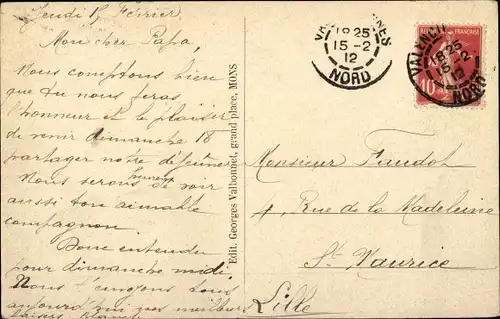 Jeudi 15 Février
Mon cher Papa,
Nous comptons bien
que tu nous feras
l'honneur et le plaisir
de venir dimanche 18
partager notre déjeuner
Nous serons heureux de voir
aussi ton aimable
compagnon.
Bien entendu
pour dimanche midi.
Nous t'envoyons tous
aujourd'hui nos meilleurs
Edit. Georges Valbonnet, grand place, MONS
VALENCIENNES
18 25
15-2
12
NORD
FRANÇAISE
10
VALENCIENNES
18 25
15-2
12
NORD
Monsieur Faudot
4, Rue de la Madeleine
St Maurice
Lille